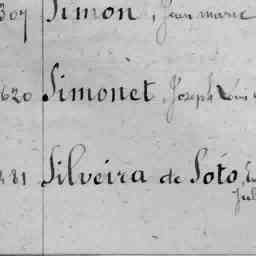 307 Simon, Jean marie
620 Simonet, Joseph Louis
181 Silveira de Soto,